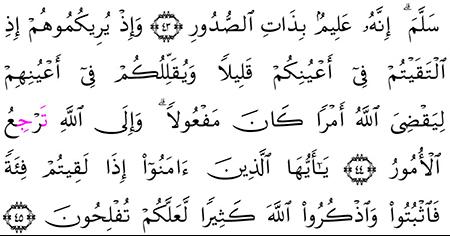 سَلَّمَ ۗ إِنَّهُۥ عَلِيمُۢ بِذَاتِ ٱلصُّدُورِ ٤٣ وَإِذْ يُرِيكُمُوهُمْ إِذِ
ٱلْتَقَيْتُمْ فِىٓ أَعْيُنِكُمْ قَلِيلًا وَيُقَلِّلُكُمْ فِىٓ أَعْيُنِهِمْ
لِيَقْضِىَ ٱللَّهُ أَمْرًا كَانَ مَفْعُولًا ۗ وَإِلَى ٱللَّهِ تَرْجِعُ
ٱلْأُمُورُ ٤٤ يَـٰٓأَيُّهَا ٱلَّذِينَ ءَامَنُوٓا۟ إِذَا لَقِيتُمْ فِئَةً
فَٱثْبُتُوا۟ وَٱذْكُرُوا۟ ٱللَّهَ كَثِيرًا لَعَلَّكُمْ تُفْلِحُونَ ٤٥